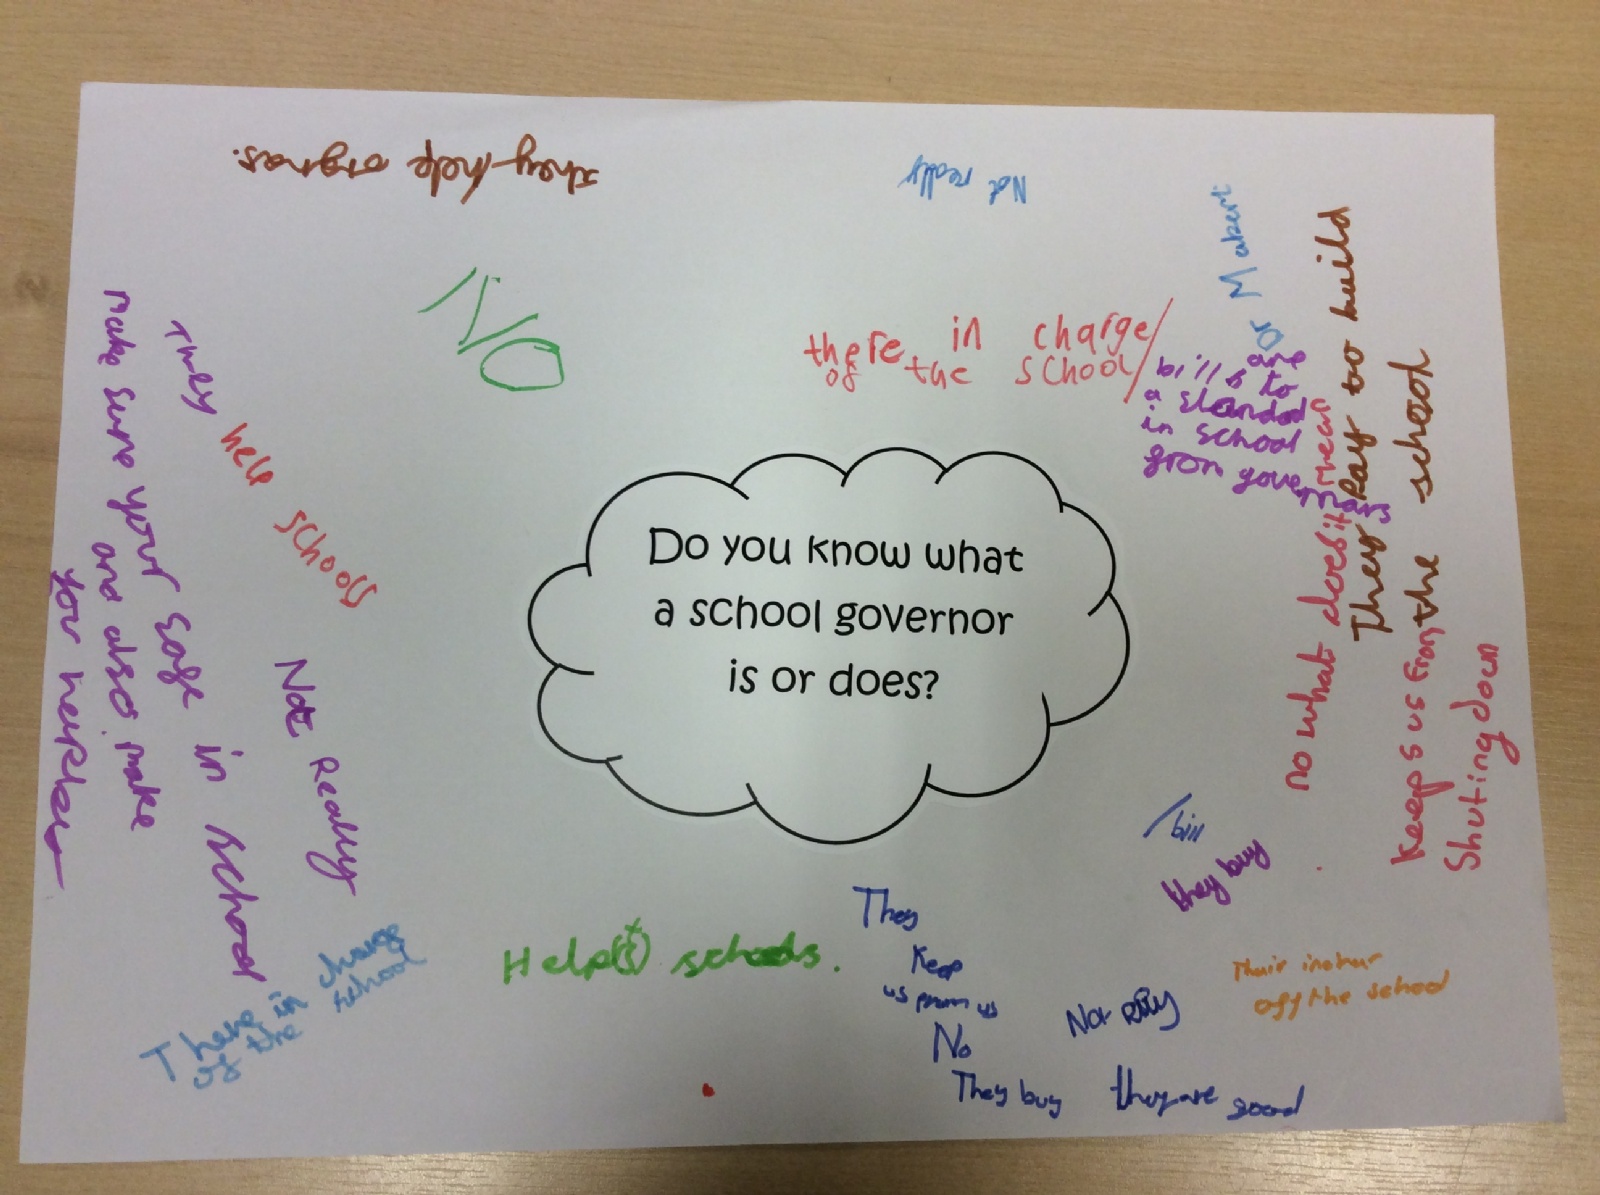 they help orgnas.
Not really
NO
there in charge
of the school
or
bills are
a standad to
in school
from governars
They Pay too build
the school
no what does it mean
Keeps us from
Shuting down
They help schools
make sure your safe in school
and also make
you
Not Really
Do you know what
a school governor
is or does?
/bill
they buy
There in charge
of the school
Help(s) schools.
They
Keep
us us
No
Not
They buy they are good
Thair
off the school